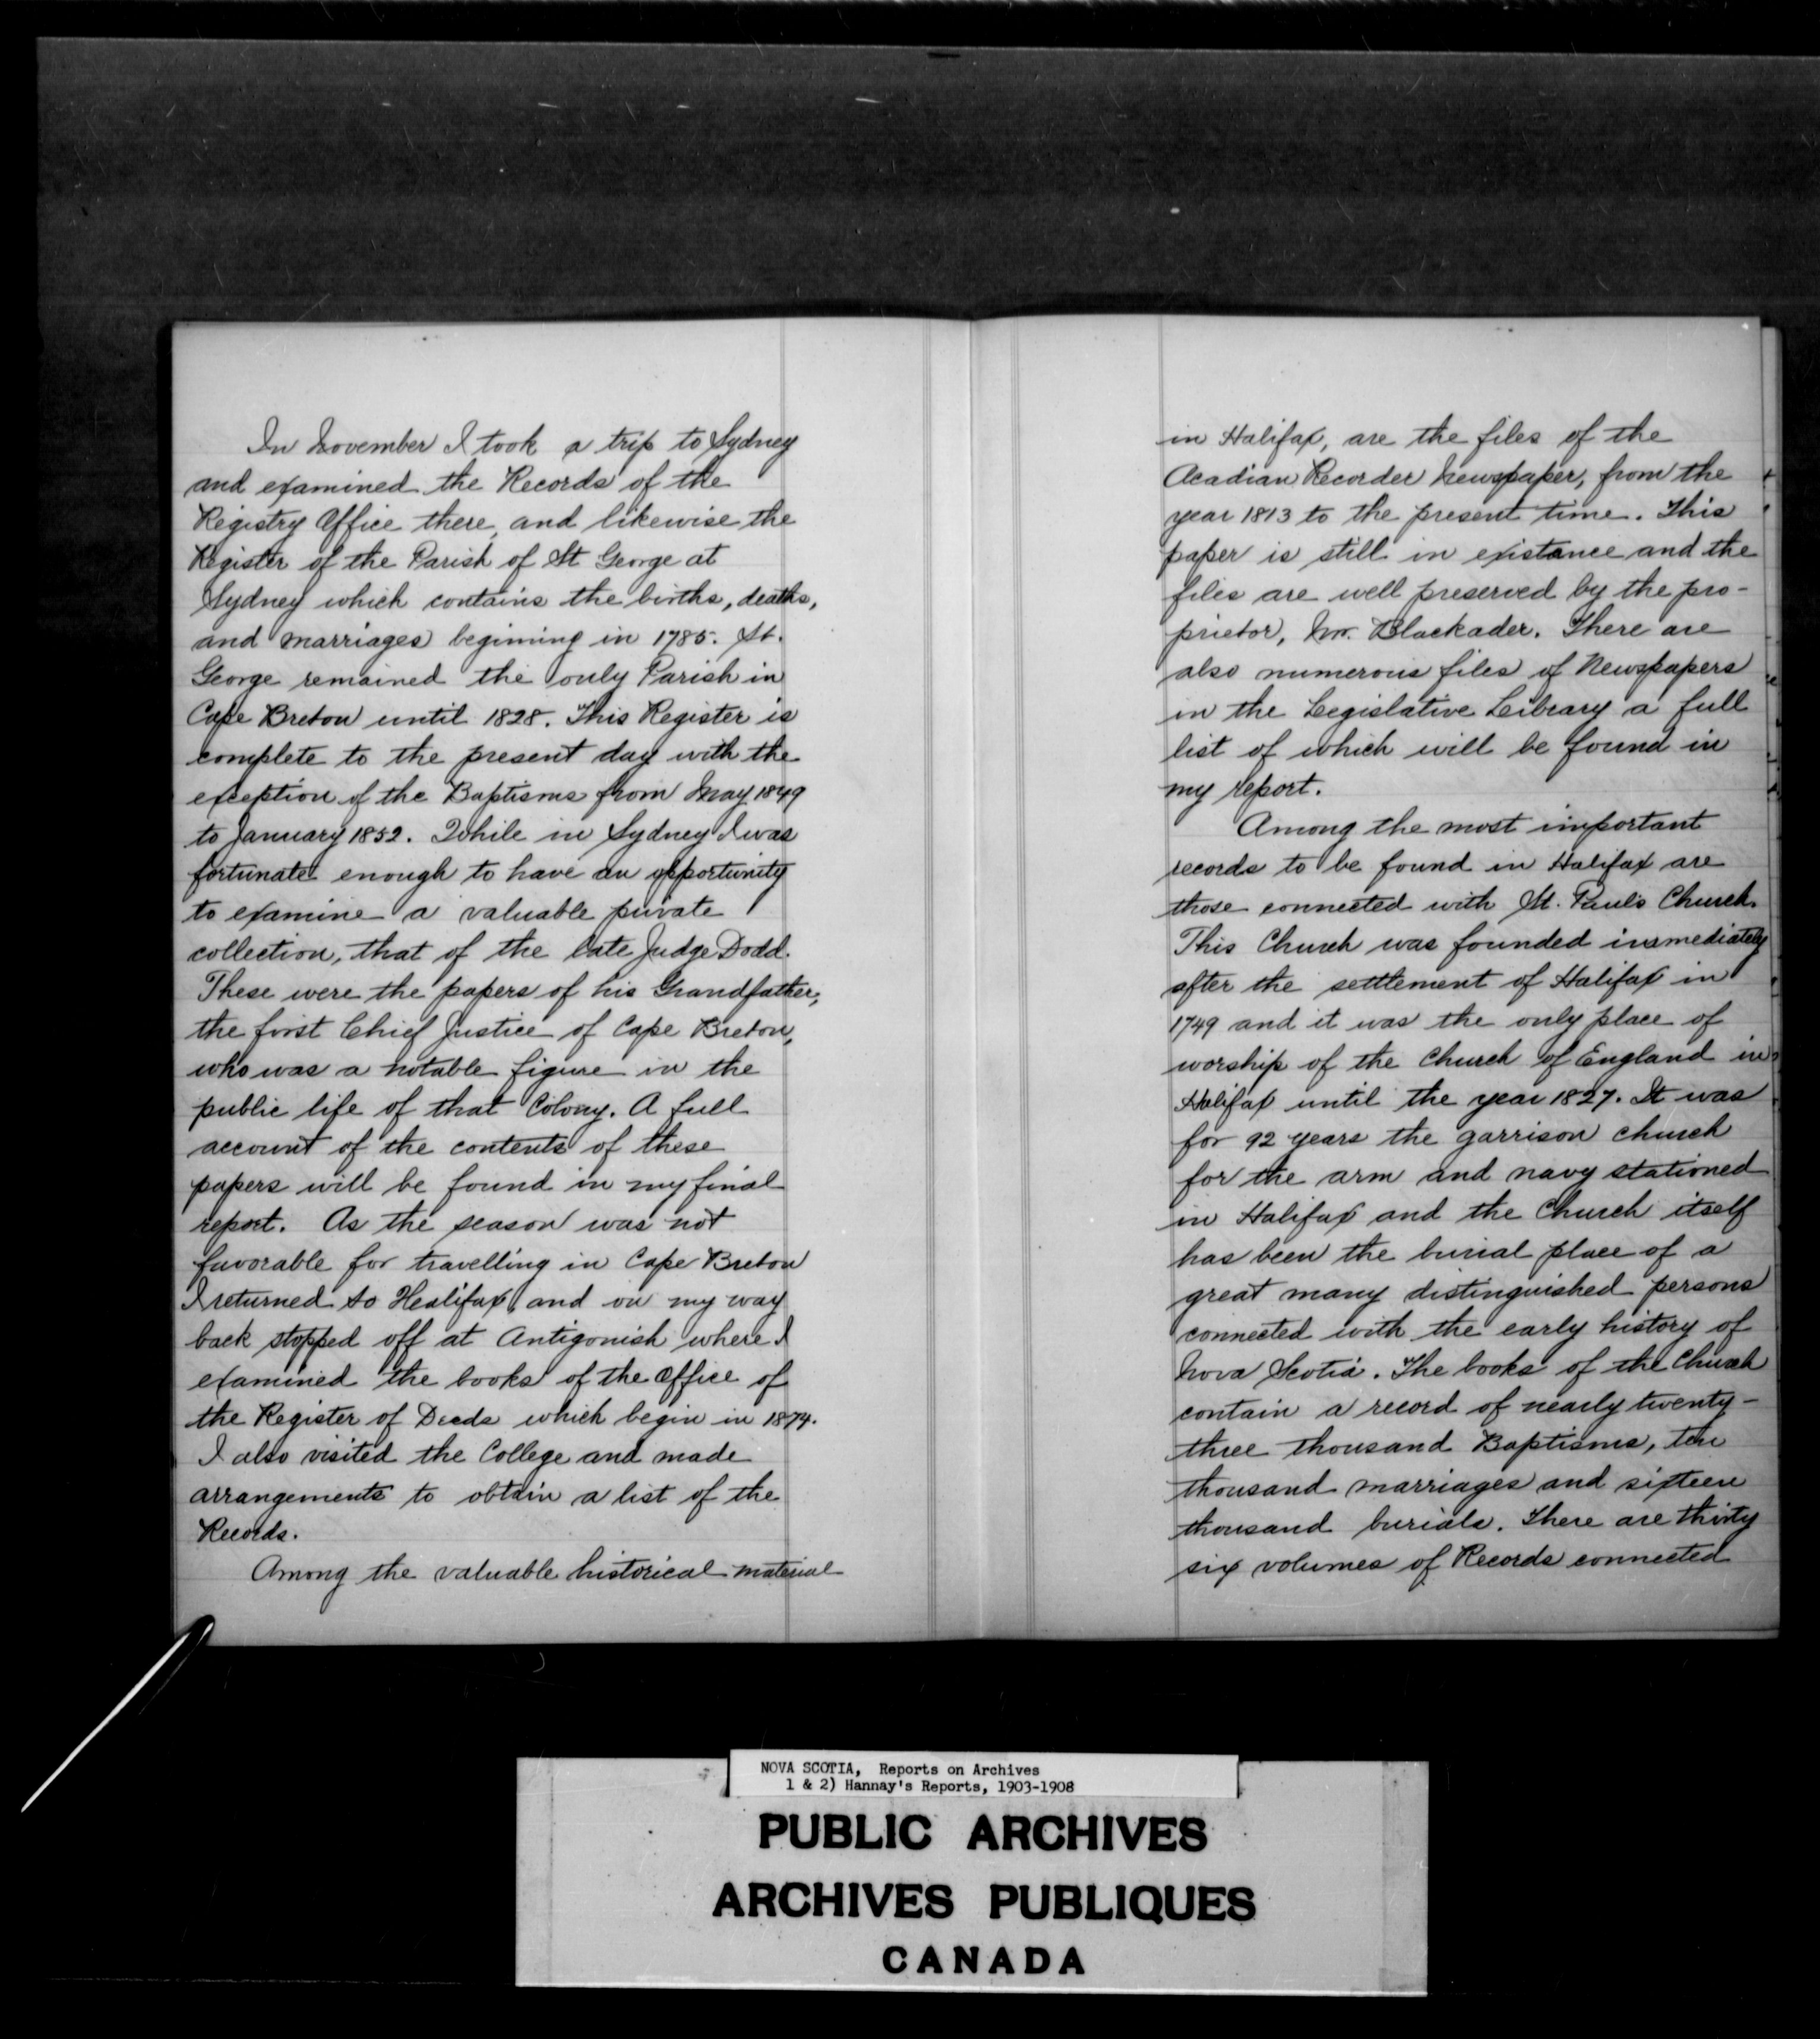 In November I took a trip to Sydney
and examined the Records of the
Registry Office there, and likewise the
Register of the Parish of St George at
Sydney which contains the births, deaths,
and marriages begining in 1785. St.
George remained the only Parish in
Cape Breton until 1828. This Register is
complete to the present day with the
exception of the Baptisms from May 1849
to January 1852. While in Sydney I was
fortunate enough to have an opportunity
to examine a valuable private
collection, that of the late Judge Dodd.
These were the papers of his Grandfather,
the first Chief Justice of Cape Breton,
who was a notable figure in the
public life of that Colony. A full
account of the contents of these
papers will be found in my final
report. As the season was not
favorable for travelling in Cape Breton
I returned to Healifax, and on my way
back stopped off at Antigonish where I
examined the books of the Office of
the Register of Deeds which begin in 1874.
I also visited the College and made
arrangements to obtain a list of the
Records.
Among the valuable historical material
in Halifax, are the files of the
Acadian Recorder Newspaper, from the
year 1813 to the present time. This
paper is still in existance and the
files are well preserved by the pro-
prietor, Mr. Blackader. There are
also numerous files of Newspapers
in the Legislative Library a full
list of which will be found in
my report.
Among the most important
records to be found in Halifax are
those connected with St. Paul's Church.
This Church was founded immediately
after the settlement of Halifax in
1749 and it was the only place of
worship of the Church of England in
Halifax until the year 1827. It was
for 92 years the garrison church
for the arm and navy stationed
in Halifax and the Church itself
has been the burial place of a
great many distinguished persons
connected with the early history of
Nova Scotia. The books of the Church
contain a record of nearly twenty-
three thousand Baptisms, ten
thousand marriages and sixteen
thousand burials. There are thirty
six volumes of Records connected
NOVA SCOTIA, Reports on Archives
1 & 2) Hannay's Reports, 1903-1908
PUBLIC ARCHIVES
ARCHIVES PUBLIQUES
CANADA